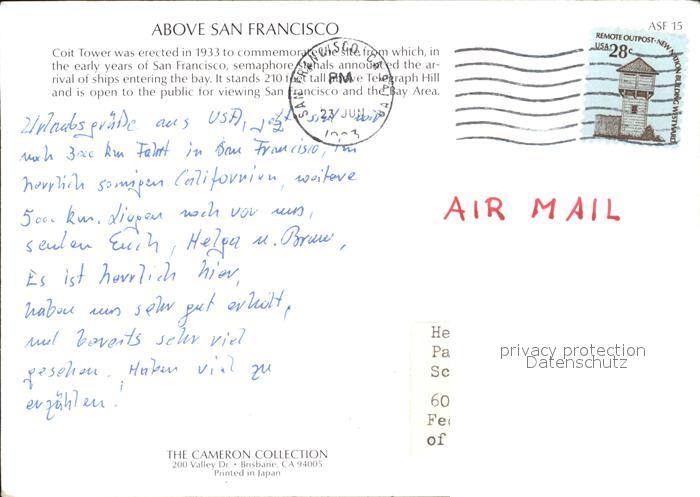 ABOVE SAN FRANCISCO
ASF 15
Coit Tower was erected in 1933 to commemorate the site from which, in
the early years of San Francisco, semaphore signals announced the ar-
rival of ships entering the bay. It stands 210 feet tall above Telegraph Hill
and is open to the public for viewing San Francisco and the Bay Area.
SAN FRANCISCO CA
PM
27 JUN
REMOTE OUTPOST • NEW NATION BUILDING WESTWARD
USA 28c
Urlaubsgrüße aus USA, jetzt sind wir
nach 3000 km Fahrt in San Francisco, im
herrlich sonnigen Californien, weitere
5000 km. liegen noch vor uns,
senden Euch, Helga u. Bruno,
Es ist herrlich hier,
haben uns sehr gut erholt,
und bereits sehr viel
gesehen. Haben viel zu
erzählen!
AIR MAIL
He
Pa
Sc
60
Fe
of
privacy protection
Datenschutz
THE CAMERON COLLECTION
200 Valley Dr. • Brisbane, CA 94005
Printed in Japan